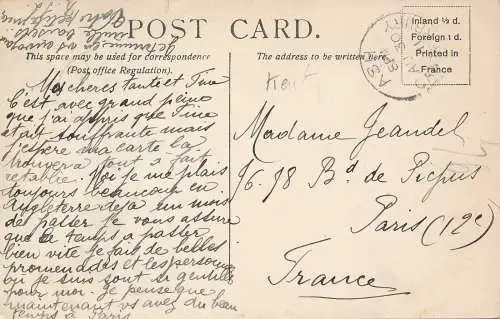 POST CARD.
This space may be used for correspondence
(Post office Regulation).
The address to be written here.
Inland ½ d.
Foreign 1 d.
Printed in
France
Kent
Mes cheres tante et Tine
C'est avec grand peine
que j'ai appris que Tine
etait souffrante mais
j'espere ma carte la
trouvera tout à fait
retablie. Moi je me plais
toujours beaucoup en
Angleterre deja un mois
de passer je vous assure
que le temps a passer
bien vite je fais de belles
promenades et les personnes
où je suis sont si gentilles
pour moi. Je pense que
maintenant vs avez du beau
temps à Paris
Je termine en vs envoyant
Madame Jeandel
76.78 Bd de Picpus
Paris (12e)
France